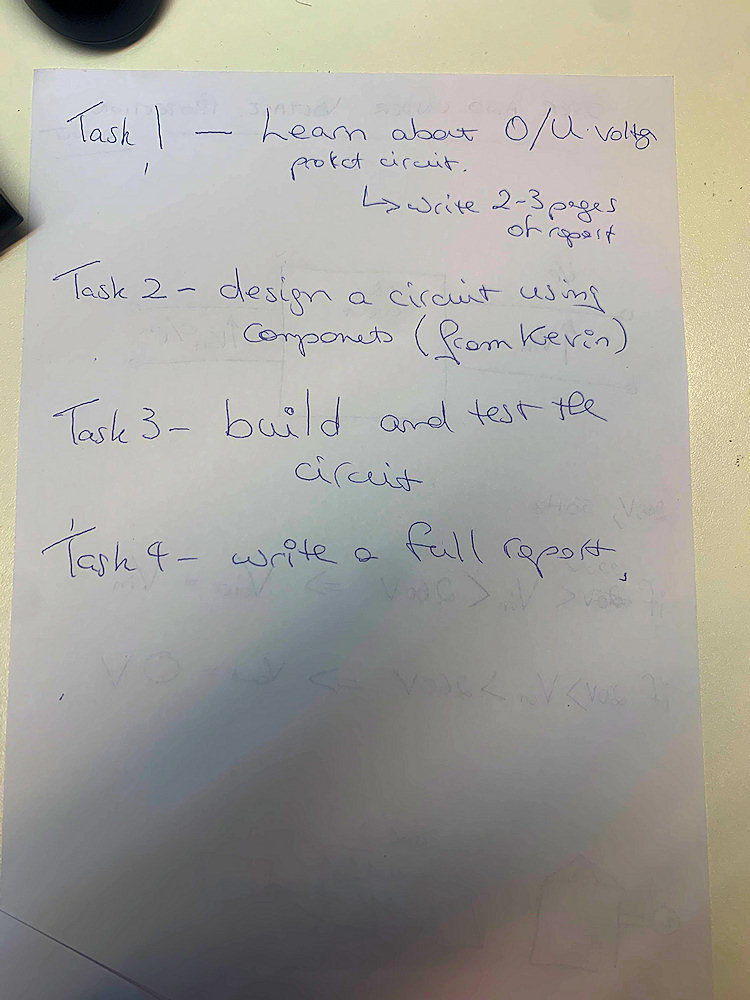 Task 1 — Learn about O/U voltge
protect circuit.
↳ write 2-3 pages
of report
Task 2 - design a circuit using
componets (from Kevin)
Task 3 - build and test the
circuit
Task 4 - write a full report,
OVER AND UNDER VOLTAGE PROTECTION